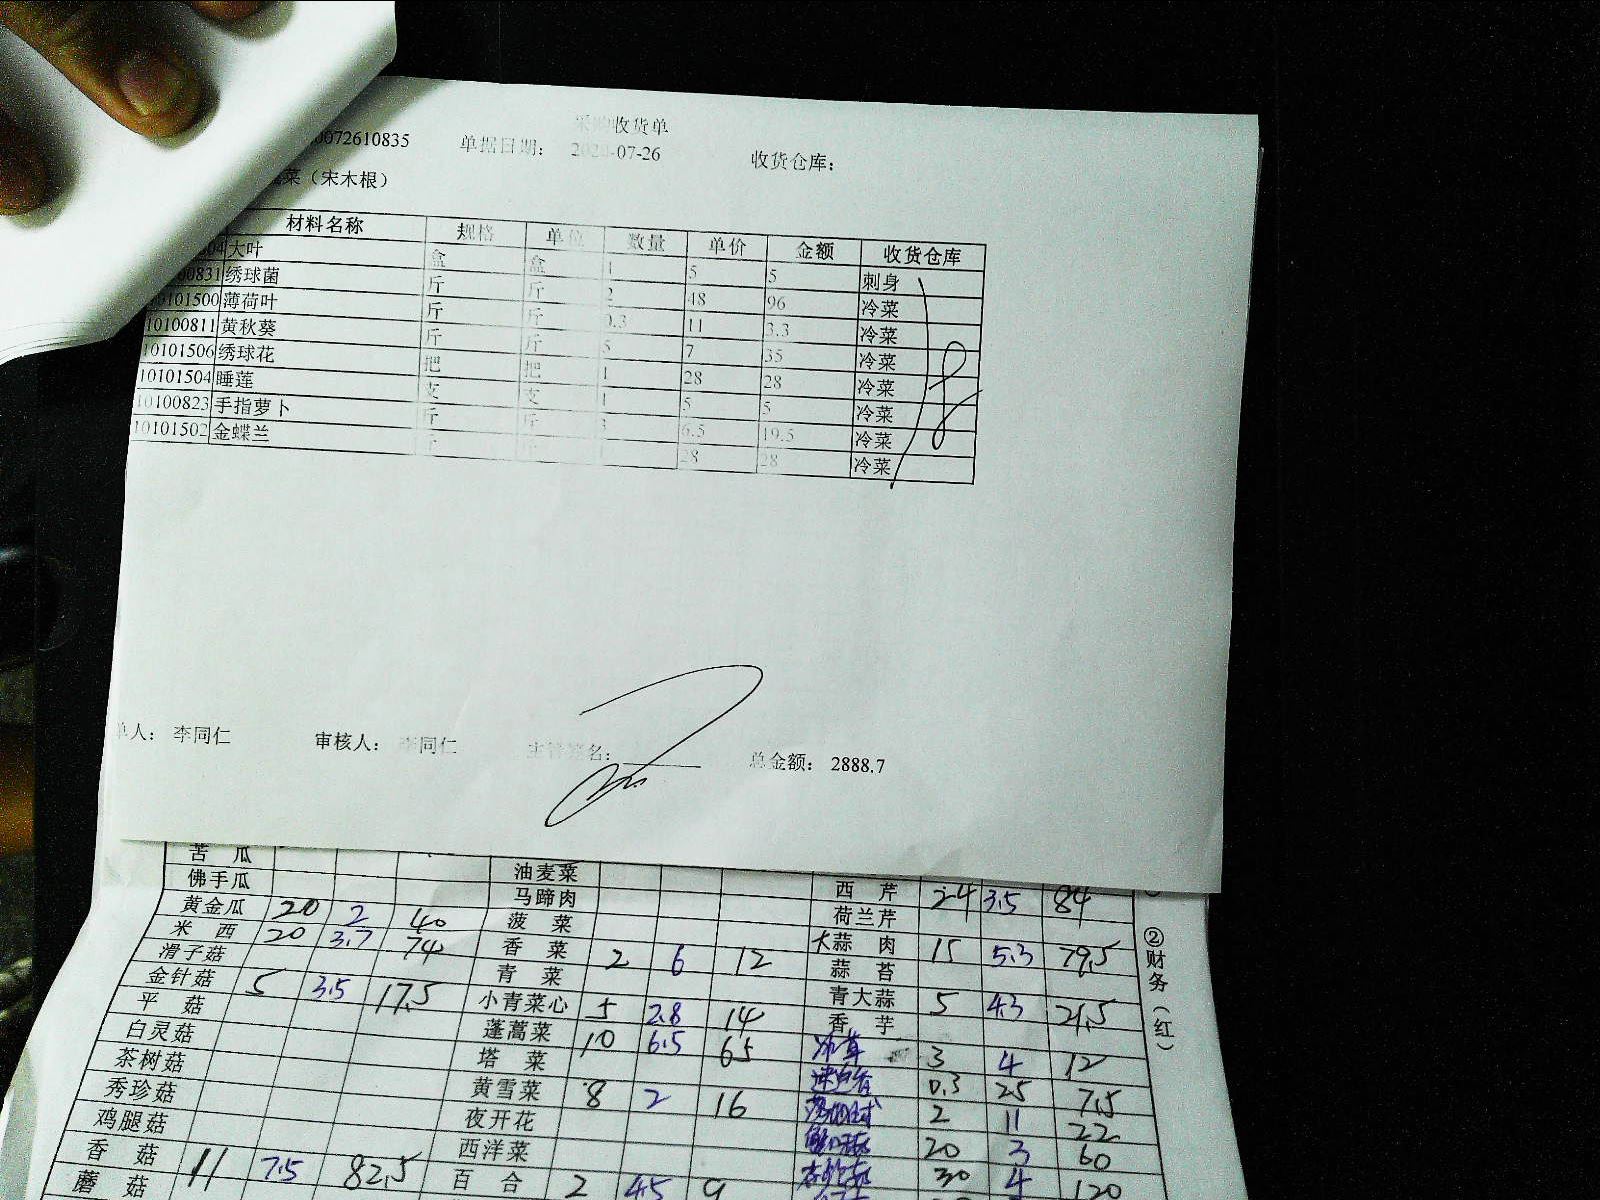 采购收货单
0072610835 单据日期： 2020-07-26 收货仓库：
菜（宋木根）
材料名称 规格 单位 数量 单价 金额 收货仓库
04 大叶 盒 盒 1 5 5 刺身
00831 绣球菌 斤 斤 2 48 96 冷菜
10101500 薄荷叶 斤 斤 0.3 11 3.3 冷菜
10100811 黄秋葵 斤 斤 5 7 35 冷菜
10101506 绣球花 把 把 1 28 28 冷菜
10101504 睡莲 支 支 1 5 5 冷菜
10100823 手指萝卜 斤 斤 3 6.5 19.5 冷菜
10101502 金蝶兰 斤 斤 1 28 28 冷菜
单人： 李同仁 审核人： 李同仁 主管签名： 总金额： 2888.7
苦瓜 油麦菜 西芹 24 3.5 84
佛手瓜 马蹄肉 荷兰芹
黄金瓜 20 2 40 菠菜 大蒜肉 15 5.3 79.5
米西 20 3.7 74 香菜 2 6 12 蒜苔
滑子菇 青菜 青大蒜 5 4.3 21.5
金针菇 5 3.5 17.5 小青菜心 5 2.8 14 香芋
平菇 蓬蒿菜 10 6.5 65 3 4 12
白灵菇 塔菜 0.3 25 7.5
茶树菇 黄雪菜 8 2 16 2 11 22
秀珍菇 夜开花 20 3 60
鸡腿菇 西洋菜 30 4 120
香菇 11 7.5 82.5 百合 2 4.5 9
蘑菇
②财务（红）